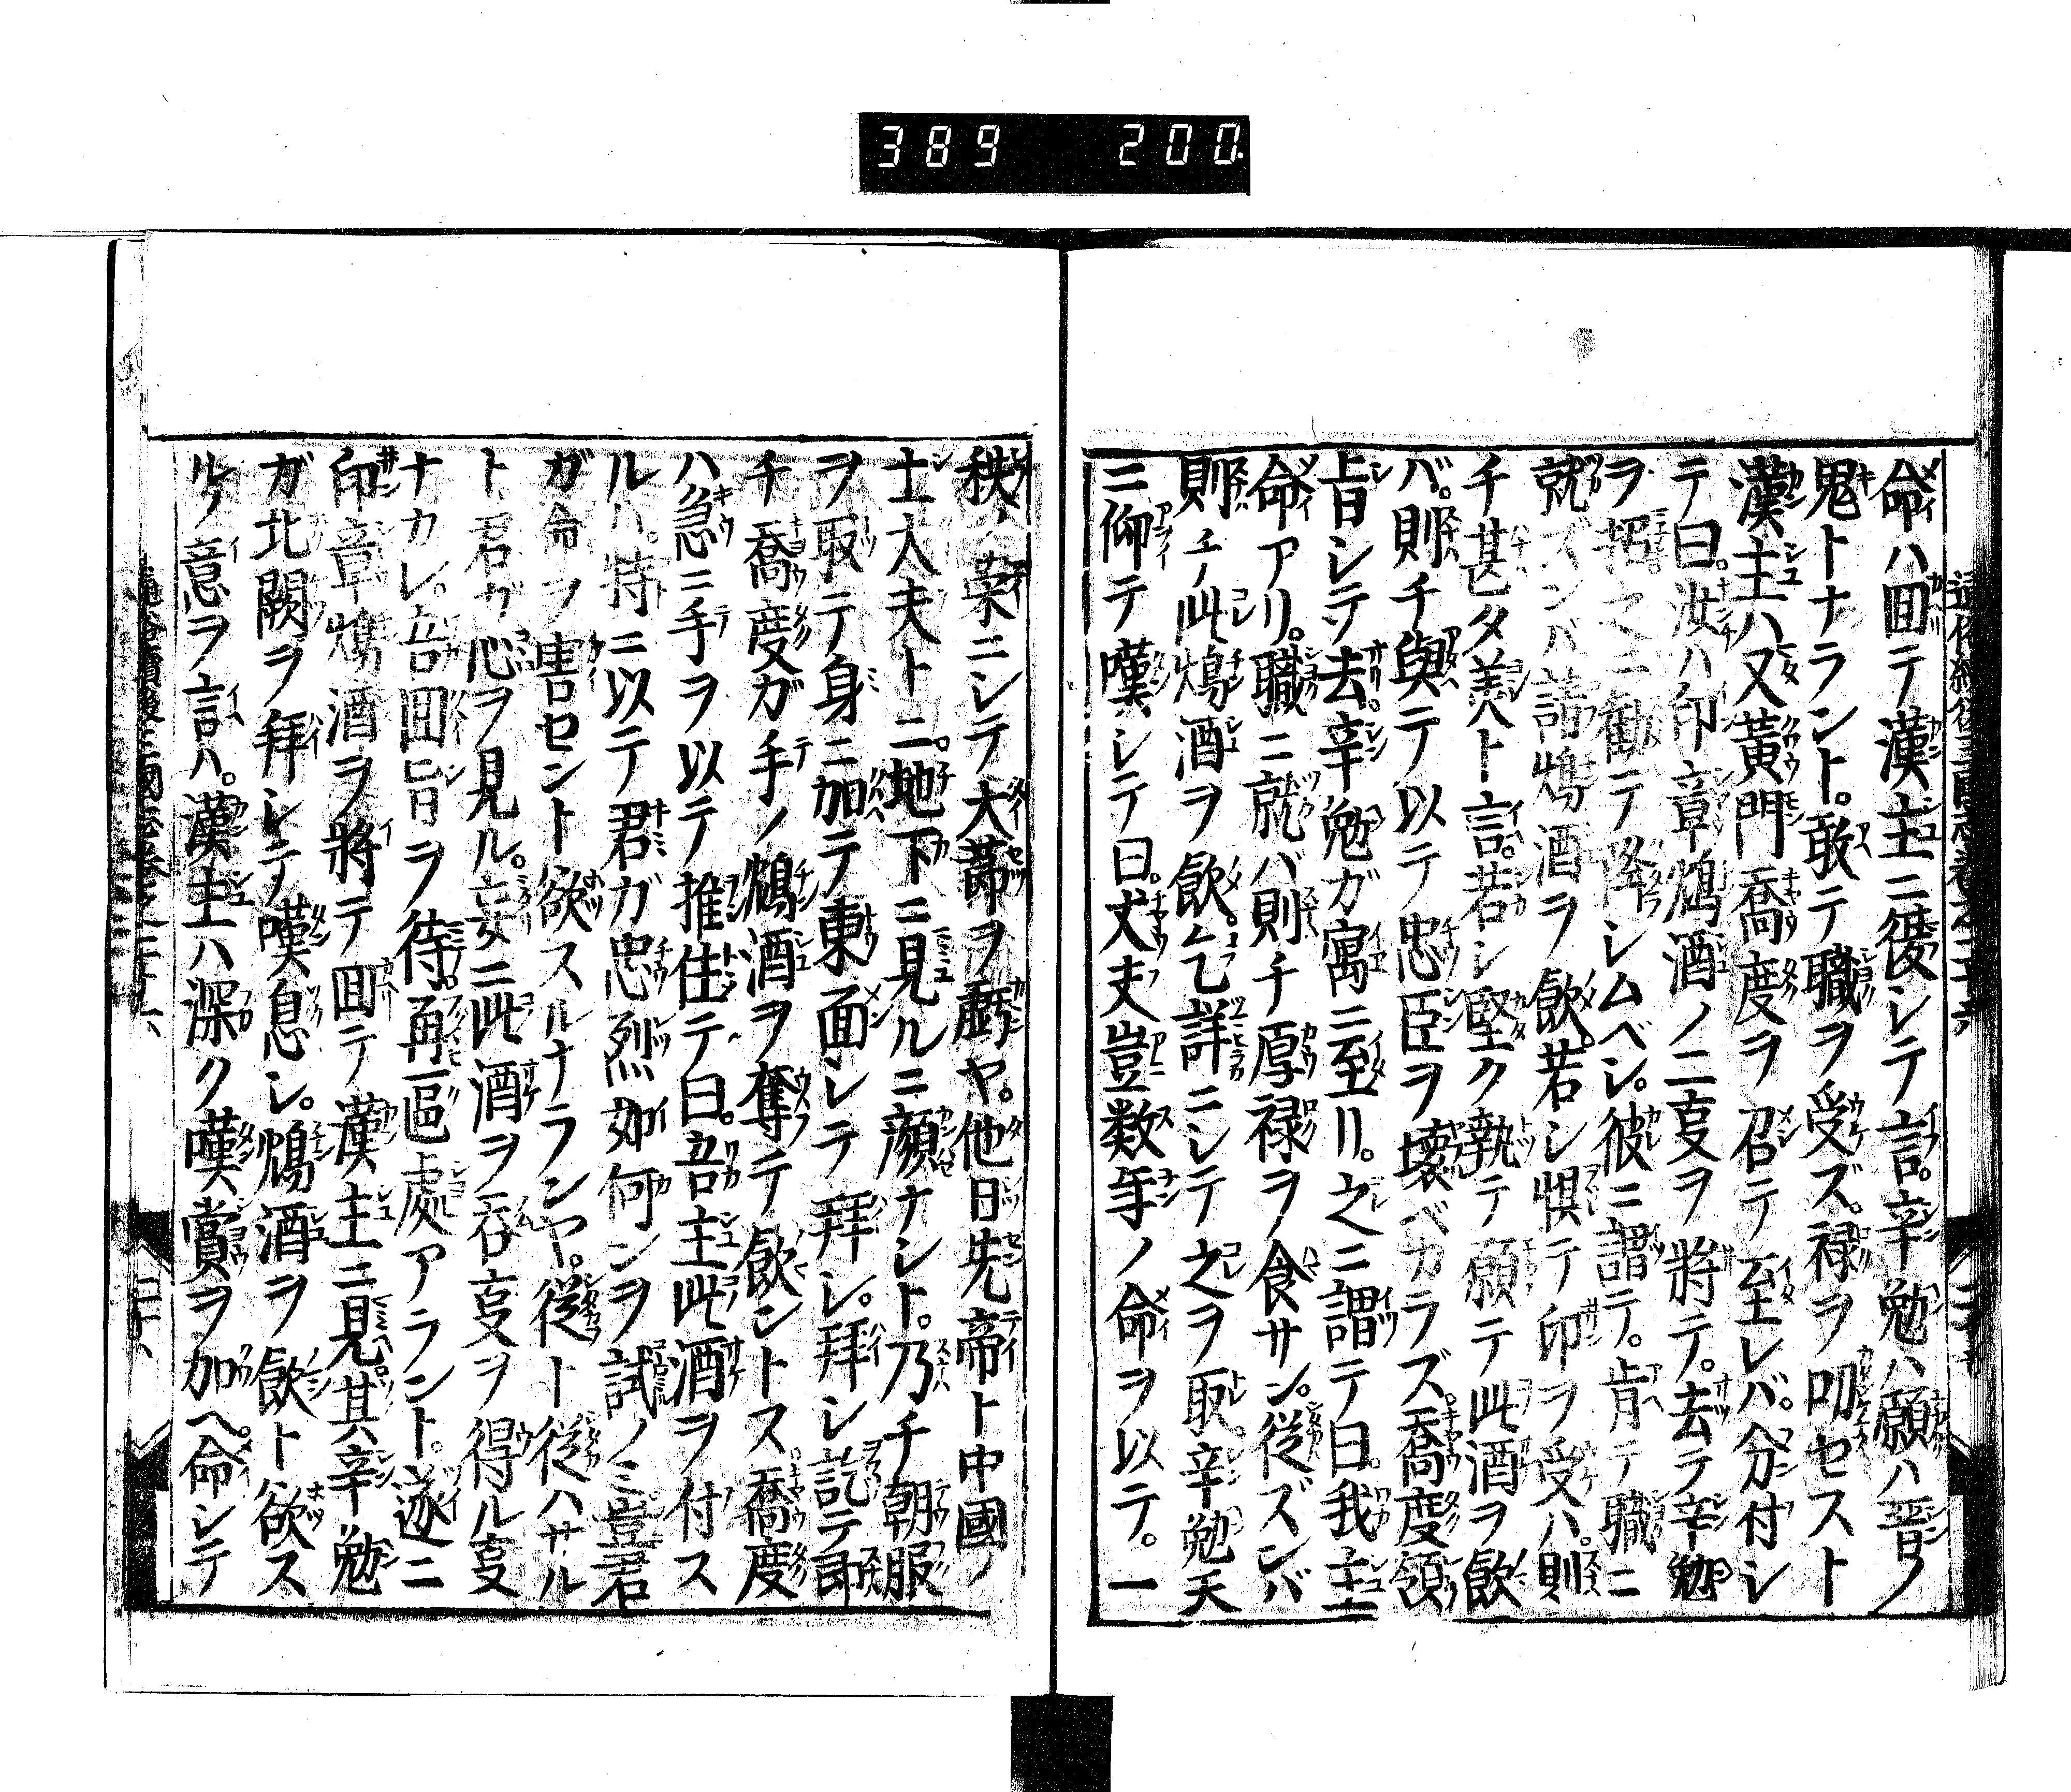 389 200.
命ハ回テ漢主ニ復シテ言。辛勉ハ願ハ晋ノ
鬼トナラント。敢テ職ヲ受ズ。禄ヲ叨セスト
漢主ハ又黄門喬度ヲ召テ至レバ。分付シ
テ曰。汝ハ印章鴆酒ノ二𠮷ヲ将テ。去テ辛勉
ヲ招マニ勧テ降シムベシ。彼ニ謂テ。肯テ職ニ
就ズンバ請鴆酒ヲ飲。若シ惧テ印ヲ受ハ。則
チ甚タ美ト言。若シ堅ク執テ願テ此酒ヲ飲
バ。則チ與テ以テ忠臣ヲ壊ベカラズ。喬度領
旨シテ去。辛勉ガ寓ニ至リ。之ニ謂テ曰。我主
命アリ。職ニ就バ則チ厚禄ヲ食サン。従ズンバ
則チ此鴆酒ヲ飲。乞詳ニシテ之ヲ取。辛勉天
ニ仰テ嘆シテ曰。丈夫豈数年ノ命ヲ以テ。一
秩ノ榮ニシテ大節ヲ虧ヤ。他日先帝ト中國ノ
士大夫トニ。地下ニ見ルニ顔ナシト。乃チ朝服
ヲ取テ身ニ加テ東面シテ拜シ。拜シ訖テ即
チ喬度ガ手ノ鴆酒ヲ奪テ飲ントス。喬度
ハ急ニ手ヲ以テ推住テ曰。吾主此酒ヲ付ス
ルハ。特ニ以テ君ガ忠烈如何ンヲ試ノミ豈君
ガ命ヲ害セント欲スルナランヤ。従ト従ハサル
ト君ガ心ヲ見ル。妄ニ此酒ヲ呑事ヲ得ル事
ナカレ。吾回旨ヲ待。再區處アラント。遂ニ
印章鴆酒ヲ將テ回テ漢主ニ見。其辛勉
ガ北闕ヲ拜シテ嘆息シ。鴆酒ヲ飲ト欲ス
ルノ意ヲ言ハ。漢主ハ深ク嘆賞ヲ加ヘ。命シテ